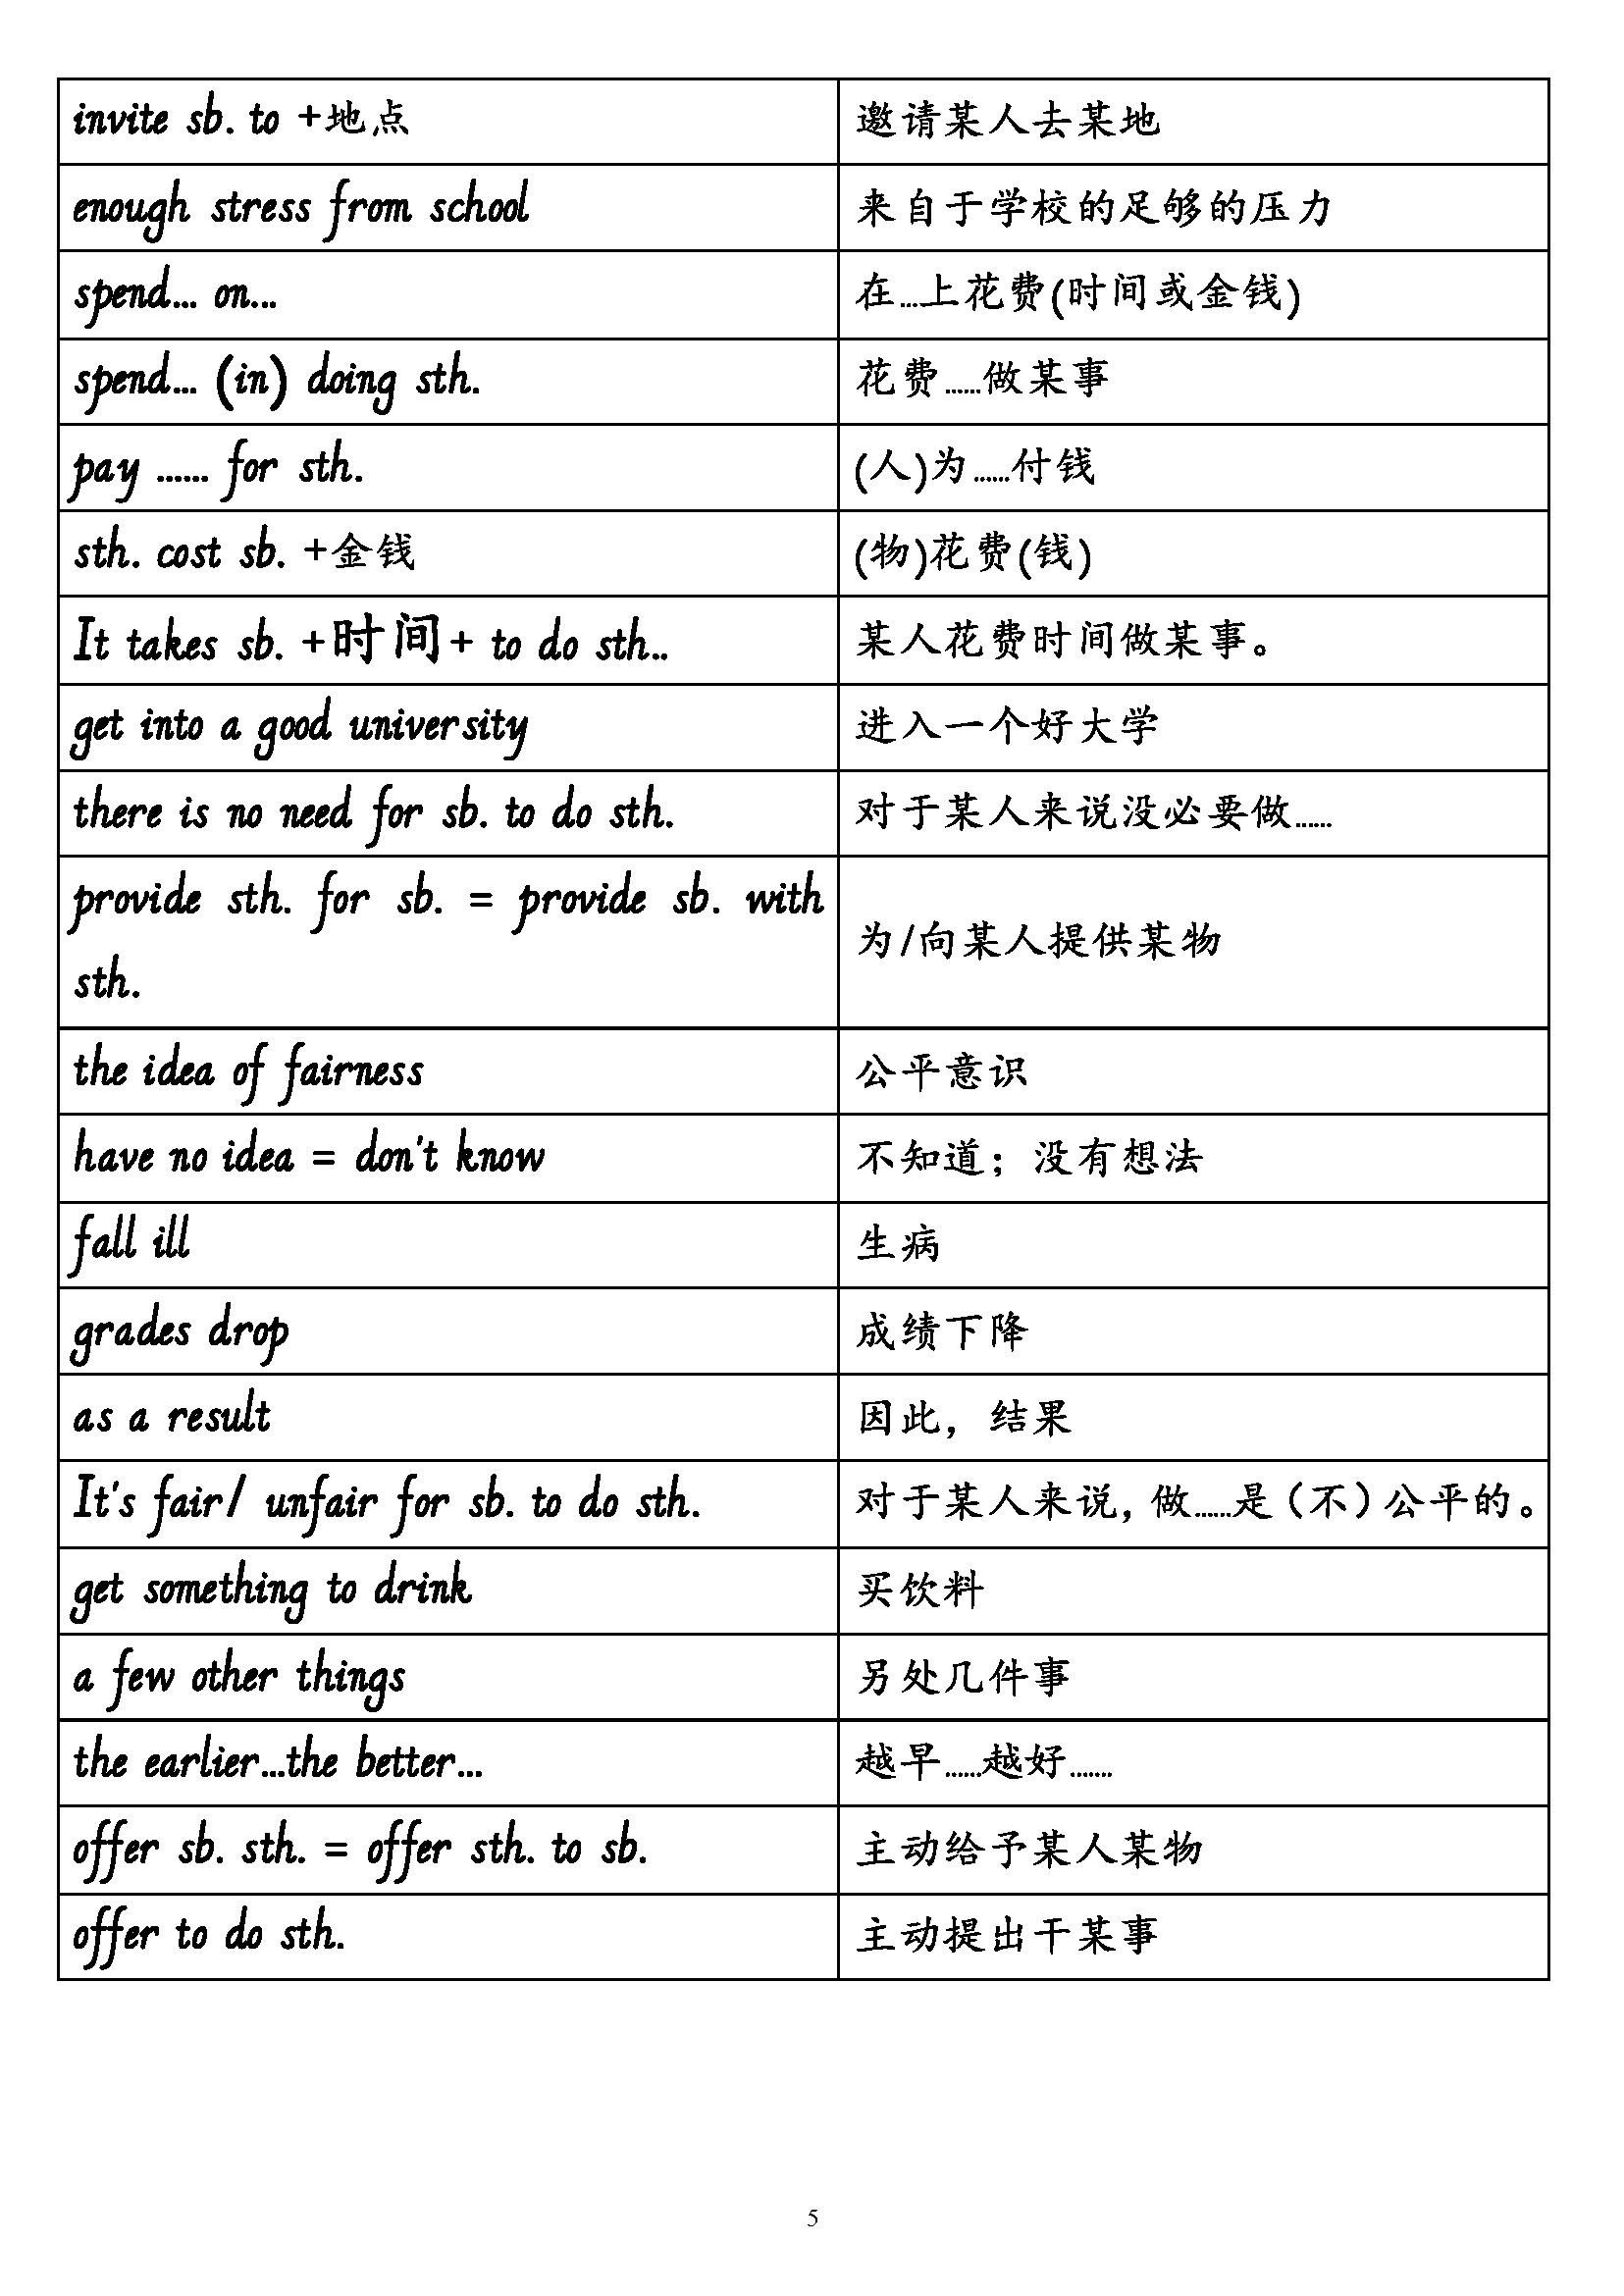 invite sb. to +地点 邀请某人去某地
enough stress from school 来自于学校的足够的压力
spend... on... 在...上花费(时间或金钱)
spend... (in) doing sth. 花费……做某事
pay …… for sth. (人)为……付钱
sth. cost sb. +金钱 (物)花费(钱)
It takes sb. +时间+ to do sth.. 某人花费时间做某事。
get into a good university 进入一个好大学
there is no need for sb. to do sth. 对于某人来说没必要做……
provide sth. for sb. = provide sb. with
sth.
为/向某人提供某物
the idea of fairness 公平意识
have no idea = don't know 不知道；没有想法
fall ill 生病
grades drop 成绩下降
as a result 因此，结果
It's fair/ unfair for sb. to do sth. 对于某人来说，做……是（不）公平的。
get something to drink 买饮料
a few other things 另处几件事
the earlier...the better... 越早……越好…….
offer sb. sth. = offer sth. to sb. 主动给予某人某物
offer to do sth. 主动提出干某事
5